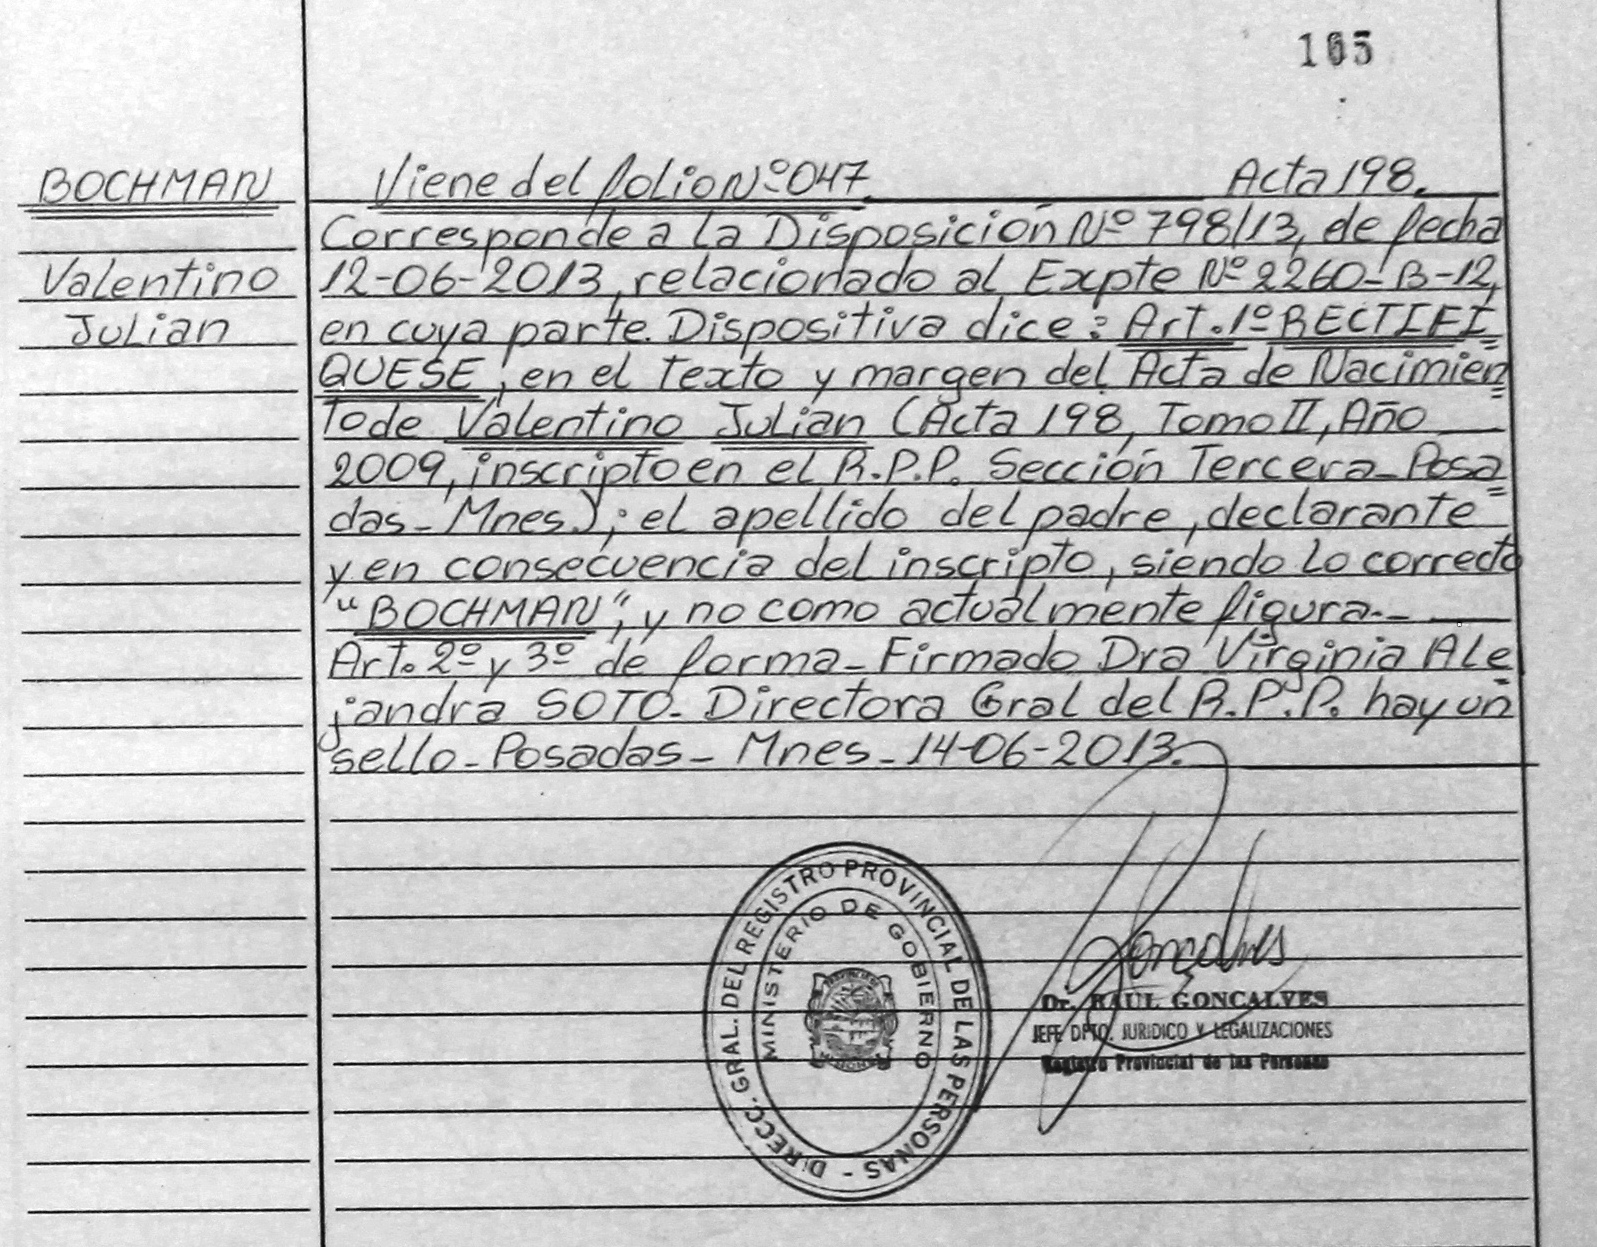 105
BOCHMAN
Valentino
Julian
Viene del folio Nº 047 Acta 198.
Corresponde a la Disposición Nº 798/13, de fecha
12-06-2013, relacionado al Expte Nº 2260-B-12,
en cuya parte Dispositiva dice: Art. 1º RECTIFI
QUESE, en el Texto y margen del Acta de Nacimien
to de Valentino Julian (Acta 198, Tomo II, Año
2009, inscripto en el R.P.P. Sección Tercera-Posa
das-Mnes.); el apellido del padre, declarante
y en consecuencia del inscripto, siendo lo correcto
"BOCHMAN", y no como actualmente figura.-
Art. 2º y 3º de forma-Firmado Dra Virginia Ale
jandra SOTO-Directora Gral del R.P.P. hay un
sello-Posadas-Mnes-14-06-2013.
DIRECC. GRAL. DEL REGISTRO PROVINCIAL DE LAS PERSONAS -
MINISTERIO DE GOBIERNO
Goncalves
Dr. RAUL GONCALVES
JEFE DPTO. JURIDICO Y LEGALIZACIONES
Registro Provincial de las Personas